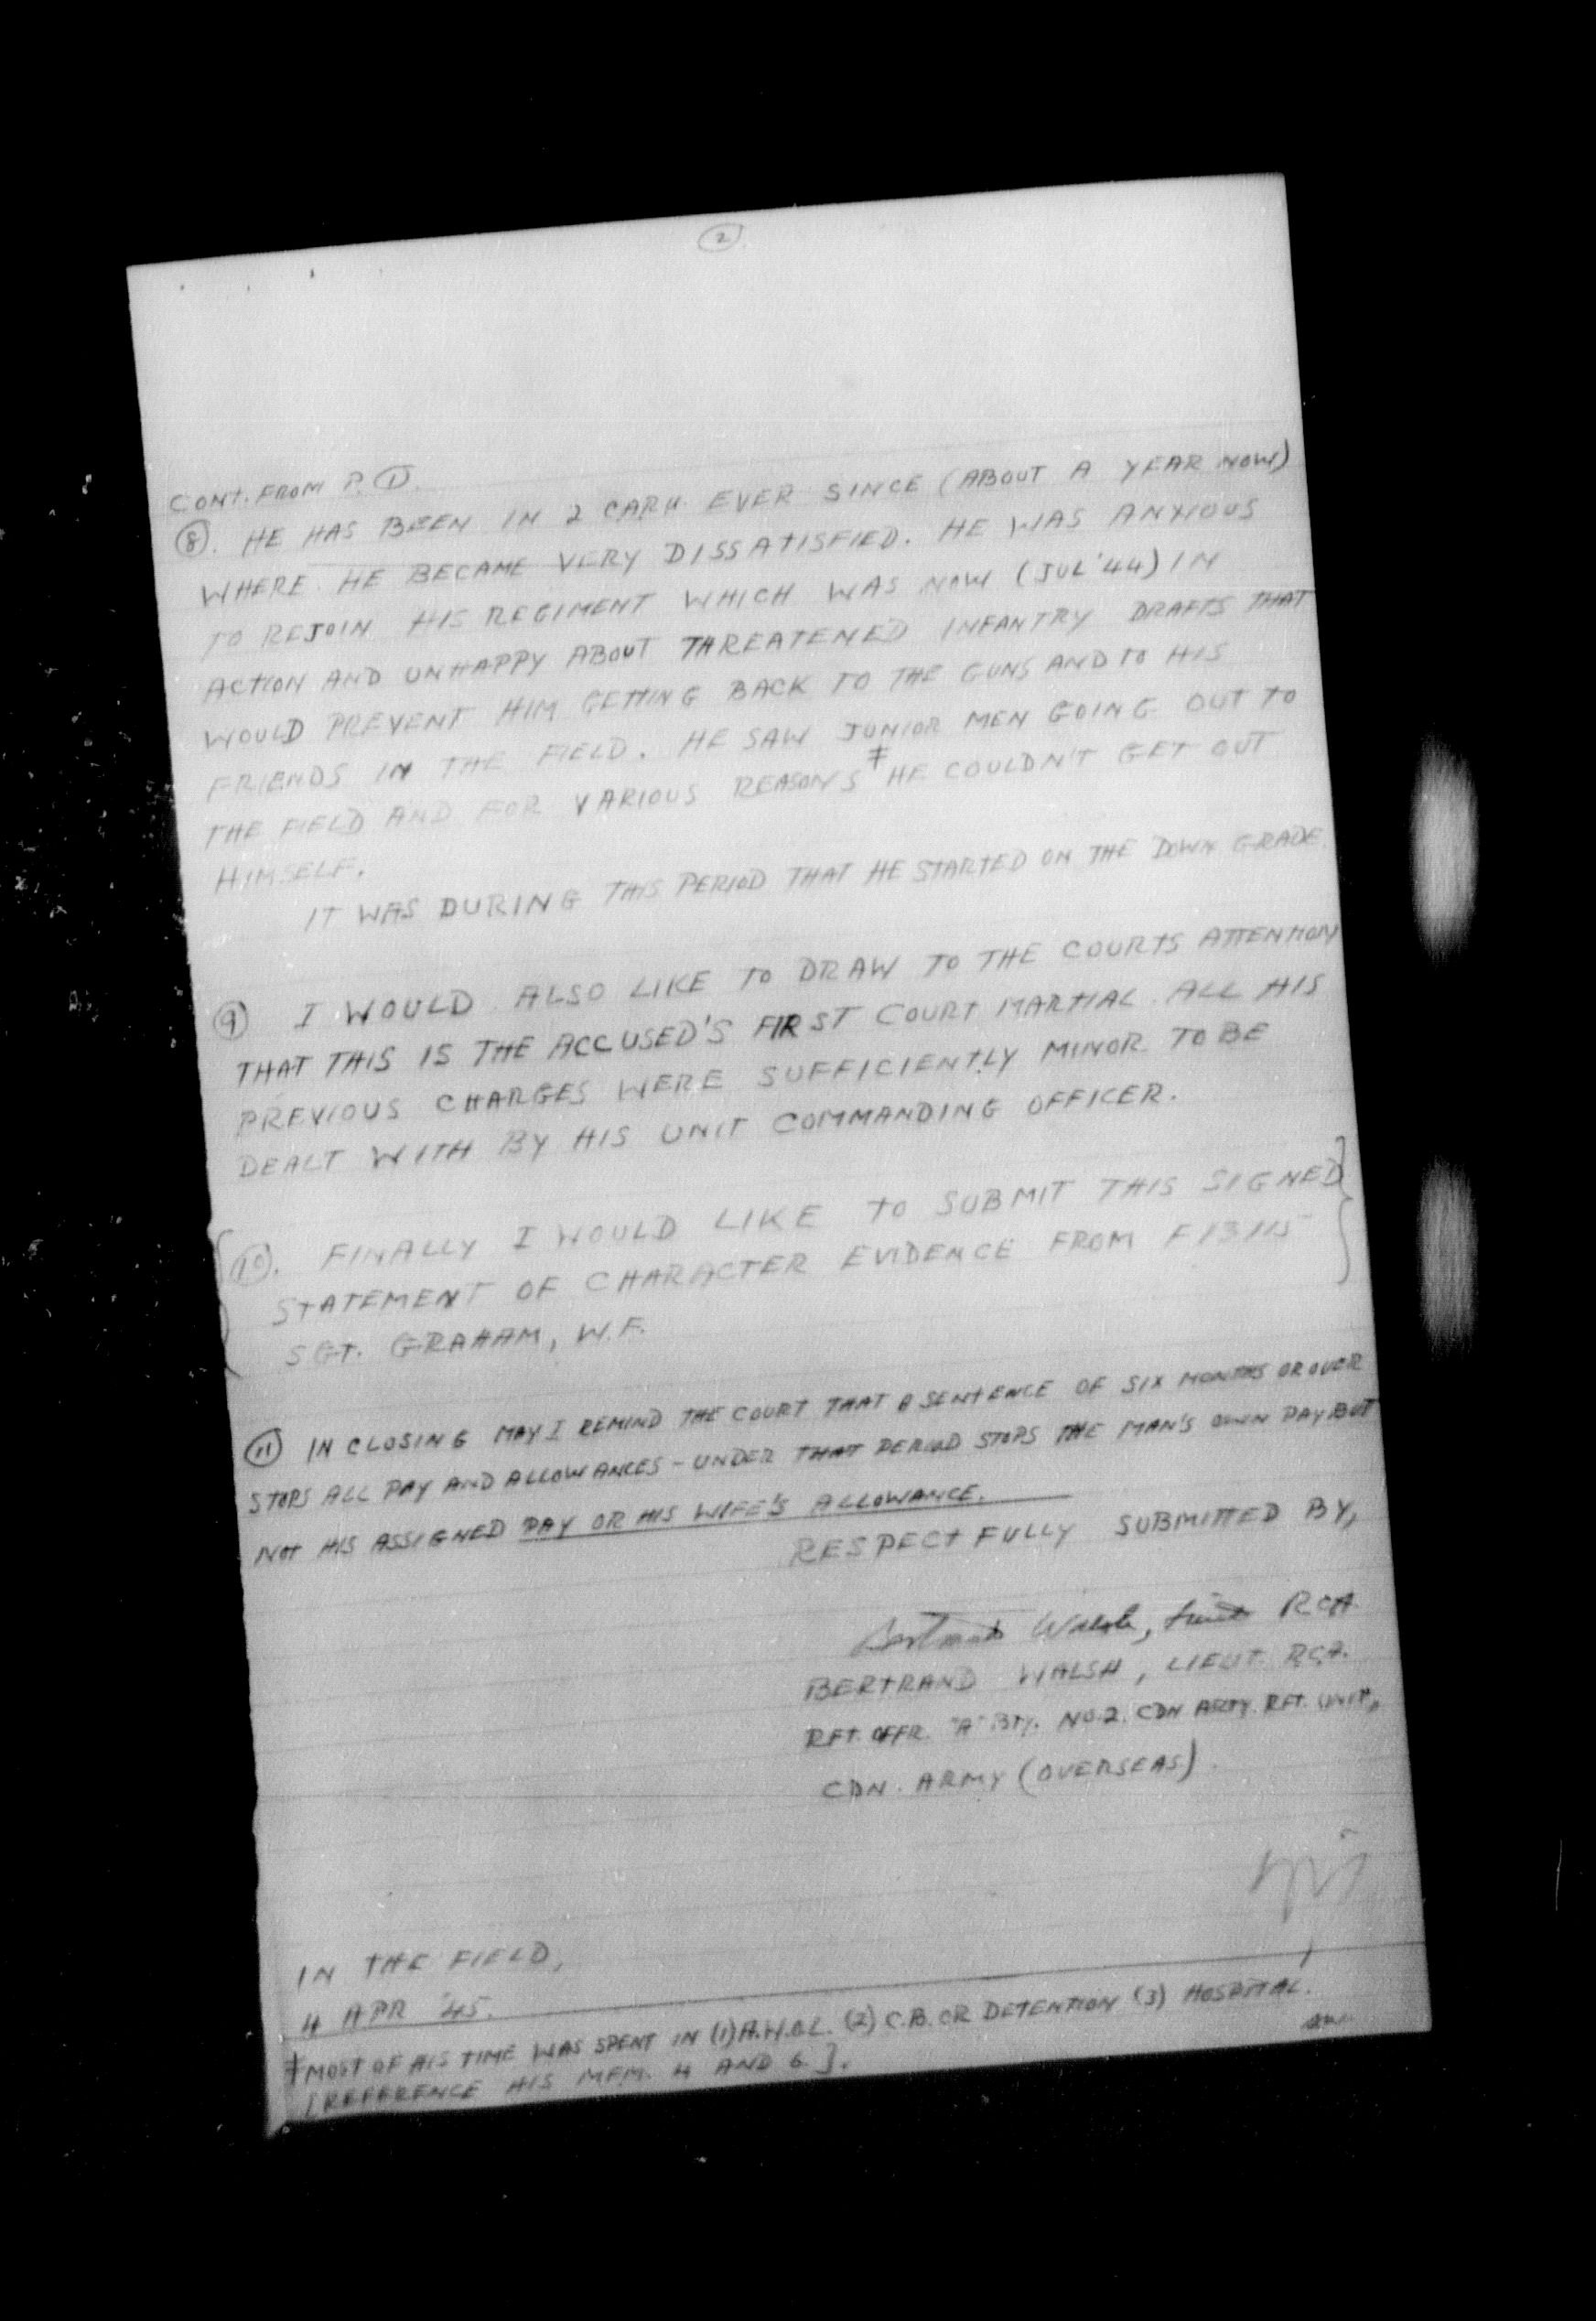 ②
CONT. FROM P. ①.
⑧. HE HAS BEEN IN 2 CARU EVER SINCE (ABOUT A YEAR NOW)
WHERE HE BECAME VERY DISSATISFIED. HE WAS ANXIOUS
TO REJOIN HIS REGIMENT WHICH WAS NOW (JUL '44) IN
ACTION AND UNHAPPY ABOUT THREATENED INFANTRY DRAFTS THAT
WOULD PREVENT HIM GETTING BACK TO THE GUNS AND TO HIS
FRIENDS IN THE FIELD. HE SAW JUNIOR MEN GOING OUT TO
THE FIELD AND FOR VARIOUS REASONS ‡ HE COULDN'T GET OUT
HIMSELF.
IT WAS DURING THIS PERIOD THAT HE STARTED ON THE DOWN GRADE.
⑨ I WOULD ALSO LIKE TO DRAW TO THE COURTS ATTENTION
THAT THIS IS THE ACCUSED'S FIRST COURT MARTIAL. ALL HIS
PREVIOUS CHARGES WERE SUFFICIENTLY MINOR TO BE
DEALT WITH BY HIS UNIT COMMANDING OFFICER.
⑩. FINALLY I WOULD LIKE TO SUBMIT THIS SIGNED
STATEMENT OF CHARACTER EVIDENCE FROM F13115
SGT. GRAHAM, W.F.
⑪ IN CLOSING MAY I REMIND THE COURT THAT A SENTENCE OF SIX MONTHS OR OVER
STOPS ALL PAY AND ALLOWANCES - UNDER THAT PERIOD STOPS THE MAN'S OWN PAY BUT
NOT HIS ASSIGNED PAY OR HIS WIFE'S ALLOWANCE.
RESPECTFULLY SUBMITTED BY,
Bertrand Walsh, Lieut RCA
BERTRAND WALSH, LIEUT. RCA.
RFT. OFFR. "A" BTY. NO. 2. CDN ARTY. RFT. UNIT,
CDN. ARMY (OVERSEAS).
IN THE FIELD,
4 APR '45.
‡ MOST OF HIS TIME WAS SPENT IN (1) A.W.O.L. (2) C.B. OR DETENTION (3) HOSPITAL.
[REFERENCE HIS MFM. 4 AND 6].